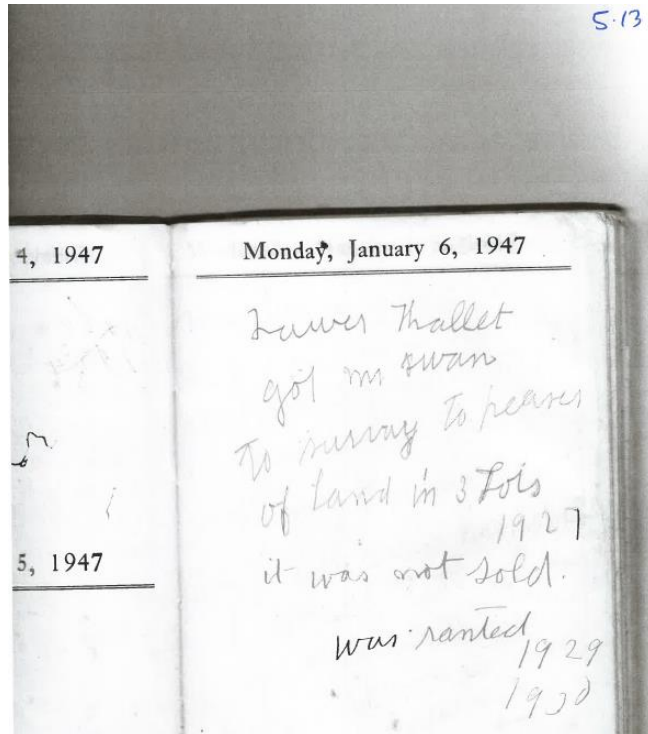 5.13
4, 1947
Monday, January 6, 1947
Lawer Thallet
got mr swan
to survay to peases
of land in 3 Lots
1927
5, 1947
it was not sold.
was ranted
1929
1930